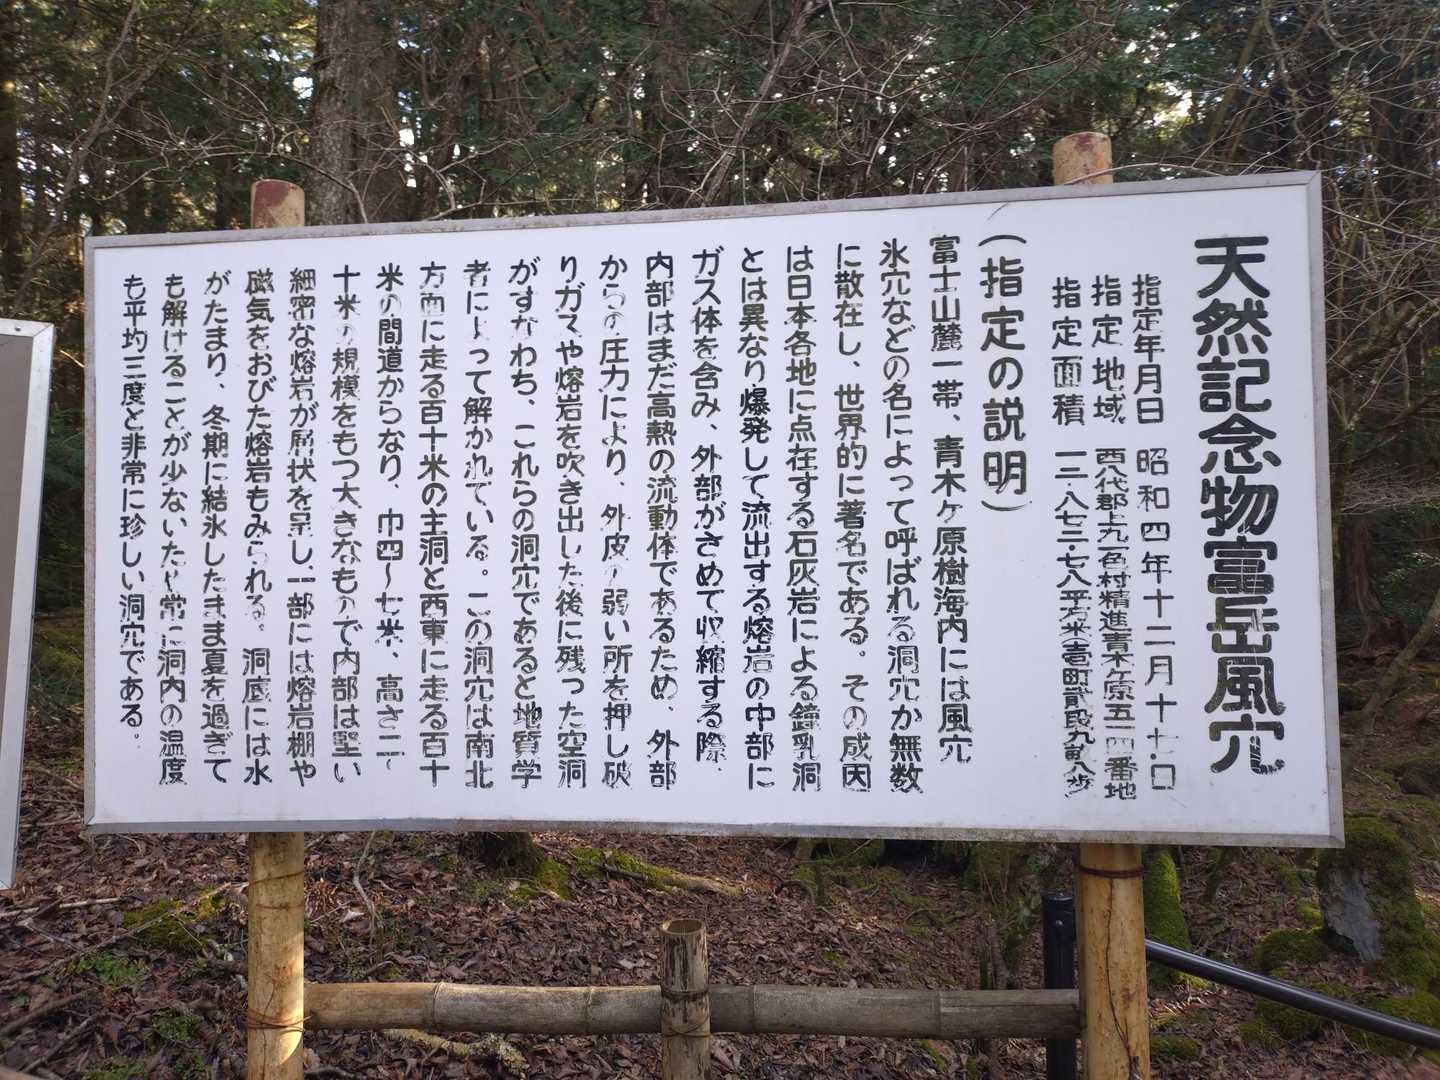 天然記念物富岳風穴
指定年月日 昭和四年十二月十七日
指定地域 西八代郡上九一色村精進青木ケ原五一四番地
指定面積 一三・八七三・七八平方米(壱町弐段九畝八歩)
(指定の説明)
富士山麓一帯、青木ケ原樹海内には風穴
氷穴などの名によって呼ばれる洞穴が無数
に散在し、世界的に著名である。その成因
は日本各地に点在する石灰岩による鐘乳洞
とは異なり爆発して流出する熔岩の中部に
ガス体を含み、外部がさめて収縮する際、
内部はまだ高熱の流動体であるため、外部
からの圧力により、外皮の弱い所を押し破
りガスや熔岩を吹き出した後に残った空洞
がすなわち、これらの洞穴であると地質学
者によって解かれている。この洞穴は南北
方面に走る百十米の主洞と西東に走る百十
米の間道からなり、巾四〜七米、高さ二〜
十米の規模をもつ大きなもので内部は堅い
細密な熔岩が層状を呈し、一部には熔岩棚や
磁気をおびた熔岩もみられる。洞底には水
がたまり、冬期に結氷したまま夏を過ぎて
も解けることが少ないため常に洞内の温度
も平均三度と非常に珍しい洞穴である。